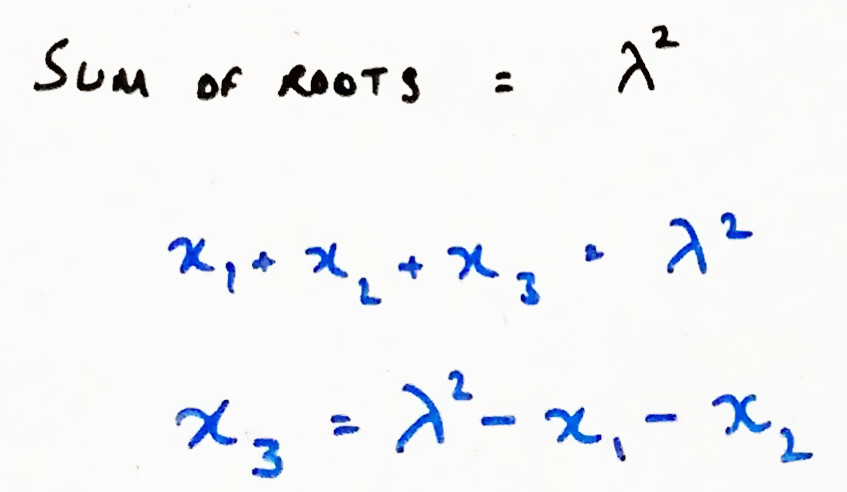 SUM OF ROOTS = λ²
x₁ + x₂ + x₃ = λ²
x₃ = λ² - x₁ - x₂